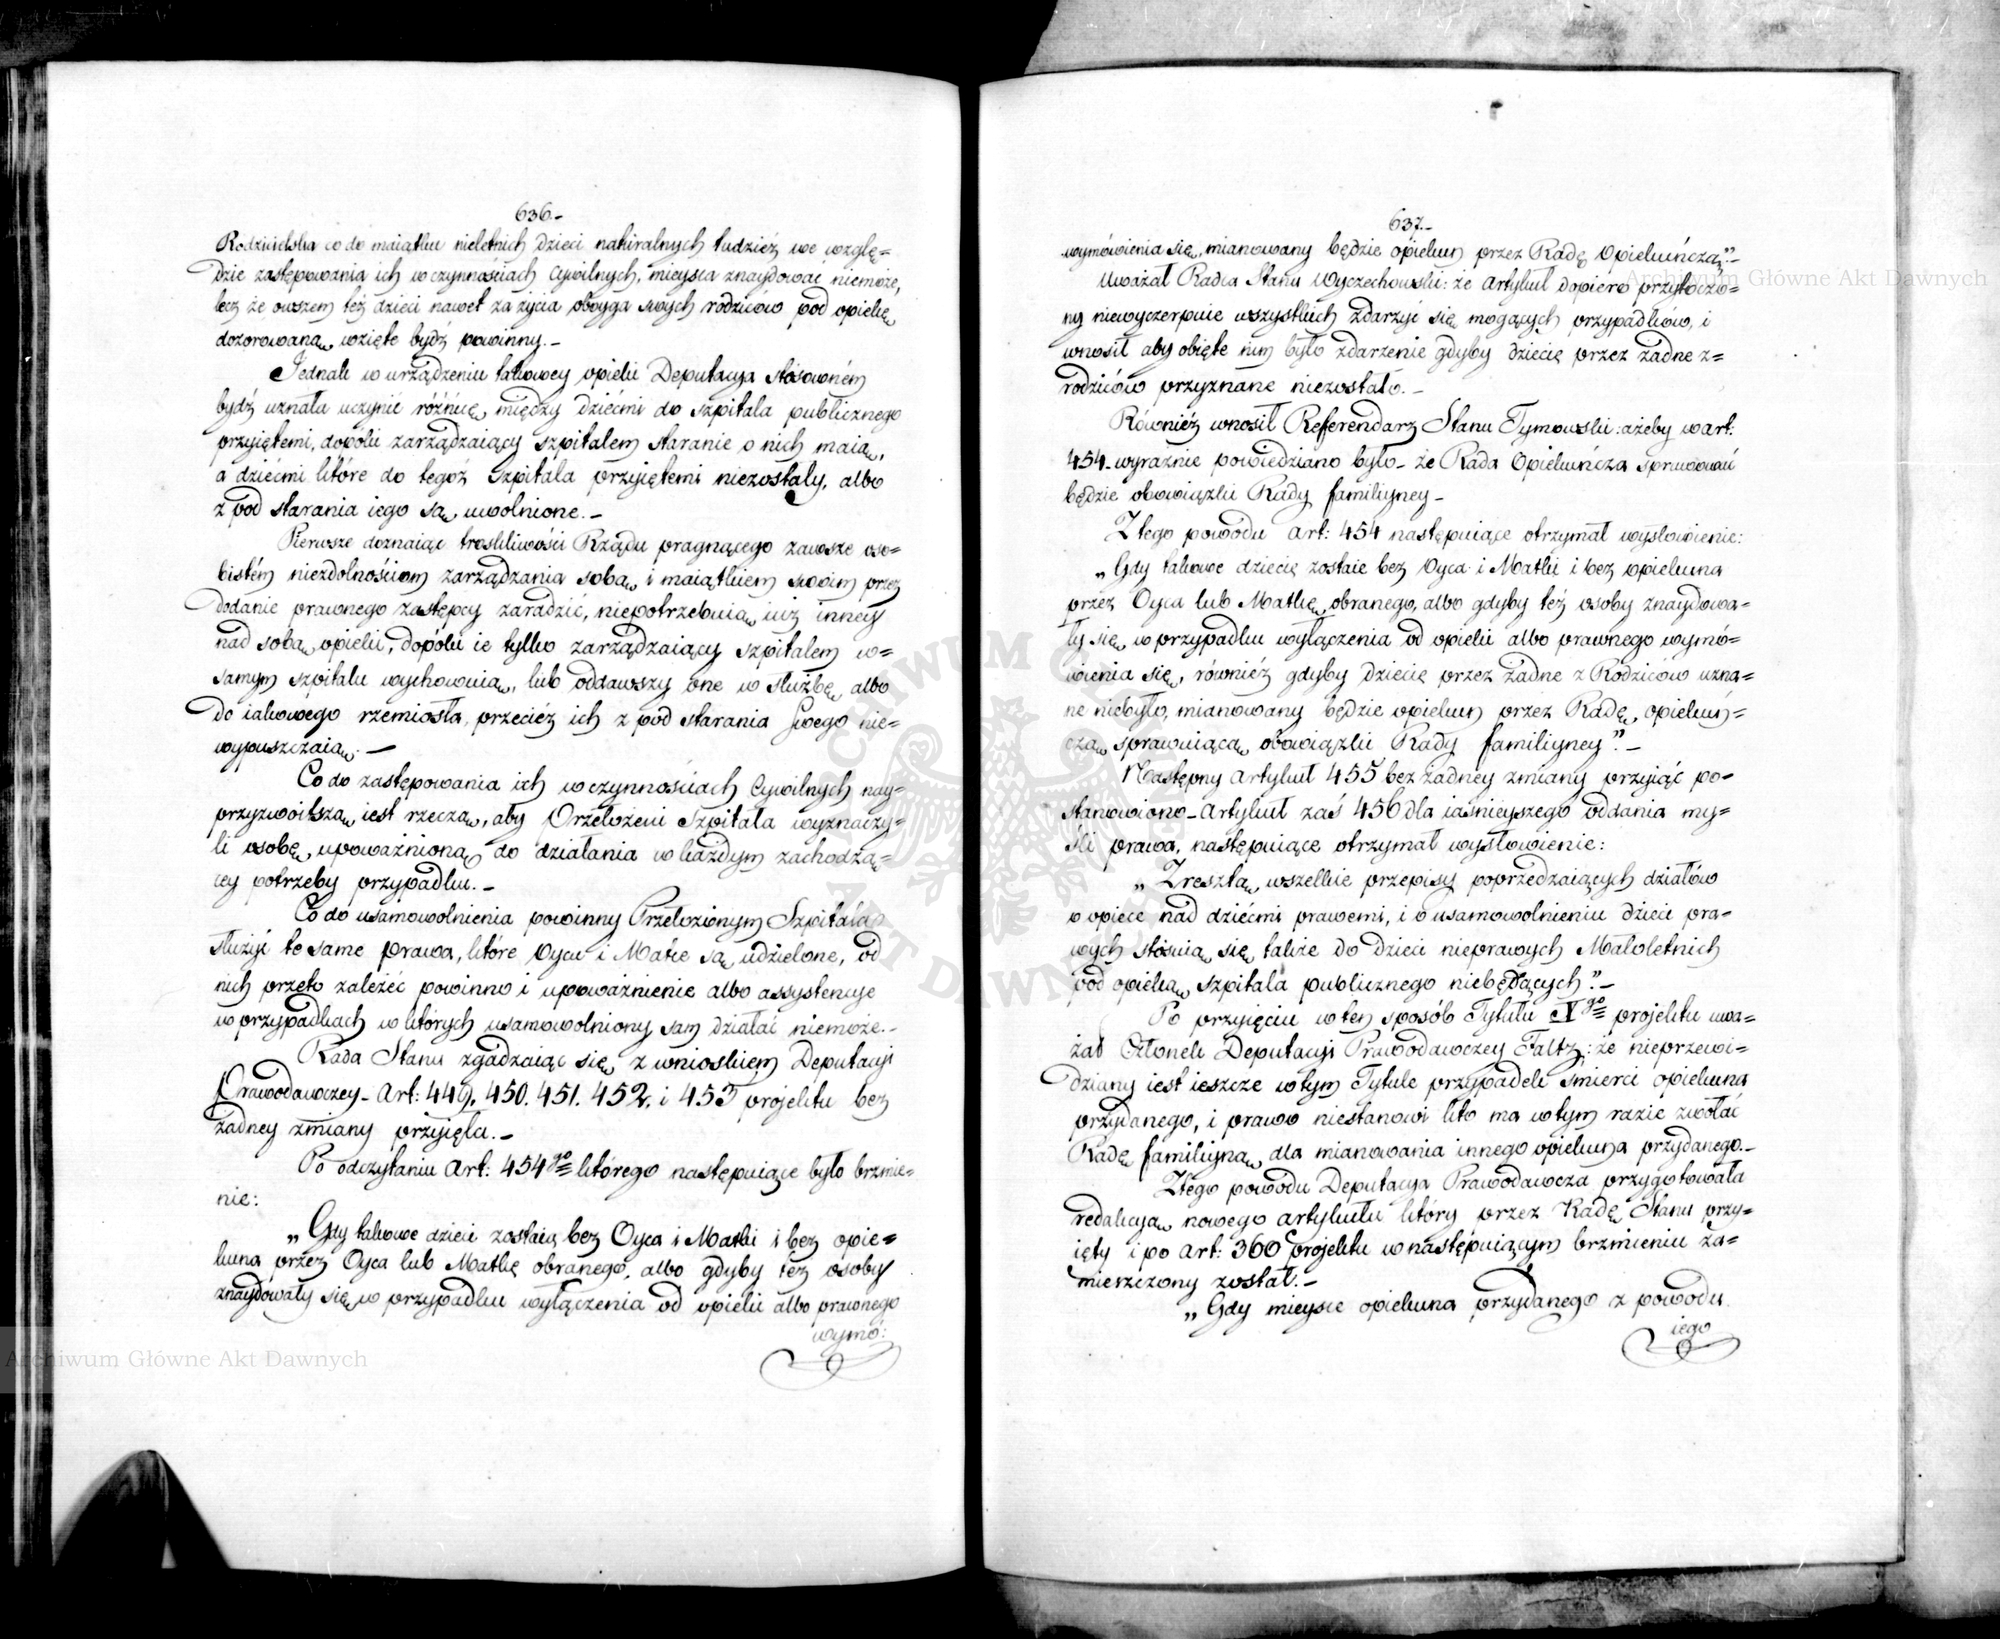 636.-
Rodzicielska co do maiątku nieletnich dzieci naturalnych tudzież we wzglę=
dzie zastępowania ich w czynnościach Cywilnych, mieysca znaydować niemoże,
lecz że owszem też dzieci nawet za życia oboyga swych rodziców pod opiekę
dozorowaną, wzięte bydź powinny.-
Jednak w urządzeniu takowey opieki Deputacya stósowném
bydź uznała uczynić różńicę, między dziećmi do szpitala publicznego
przyiętemi, dopóki zarządzaiący szpitalem staranie o nich maią,
a dziećmi które do tegoż Szpitala przyiętemi niezostały, albo
z pod starania iego są, uwolnione.-
Pierwsze doznaiąc troskliwości Rządu pragnącego zawsze oso=
bistém niezdolnościom zarządzania sobą, i maiątkiem swoim przez
dodanie prawnego zastępcy zaradzić, niepotrzebuią, iuż inney
nad sobą, opieki, dopóki ie tylko zarządzaiący szpitalem w=
samym szpitalu wychowuią, lub oddawszy one w służbę, albo
do iakowego rzemiosła, przecież ich z pod starania Swego nie=
wypuszczaią.-
Co do zastępowania ich w czynnościach Cywilnych nay=
przyzwoitszą, iest rzeczą, aby Przełożeni Szpitala wyznaczy=
li osobę, upoważnioną do działania w każdym zachodzą=
cey potrzeby przypadku.-
Co do usamowolnienia powinny Przełożonym Szpitala
służyć te same prawa, które Oycu i Matce są, udzielone, od
nich przeto zależeć powinno i upoważnienie albo assystencye
w przypadkach w których usamowolniony sam działać niemoże.-
Rada Stanu zgadzaiąc się, z wnioskiem Deputacyi
Prawodawczey- Art: 449. 450. 451. 452. i 453 projektu bez
żadney zmiany przyięła.-
Po odczytaniu Art: 454go którego następuiące było brzmie=
nie:
„Gdy takowe dzieci zostaią bez Oyca i Matki i bez opie=
kuna przez Oyca lub Matkę obranego, albo gdyby też osoby
znaydowały się, w przypadku wyłączenia od opieki albo prawnego
wymó:
637.-
wymówienia się, mianowany będzie opiekun przez Radę Opiekuńczą".-
Uważał Radca Stanu Wyczechowski: że Artykuł dopiero przytoczo=
ny niewyczerpuie wszystkich zdarzyć się mogących przypadków, i
wnosił aby obięte nim było zdarzenie gdyby dziecię przez żadne z=
rodziców przyznane niezostało.-
Również wnosił Referendarz Stanu Tymowski: ażeby w art:
454. wyraźnie powiedziano było- że Rada Opiekuńcza sprawować
będzie obowiązki Rady familiyney-
Z tego powodu Art: 454 następuiące otrzymał wysłowienie:
„Gdy takowe dziecię zostaie bez Oyca i Matki i bez opiekuna
przez Oyca lub Matkę, obranego, albo gdyby też osoby znaydowa=
ły się, w przypadku wyłączenia od opieki albo prawnego wymó=
wienia się, również gdyby dziecię przez żadne z Rodziców uzna=
ne niebyło, mianowany będzie opiekun przez Radę, opiekuń=
czą, sprawuiącą, obowiązki Rady familiyney".-
Następny Artykuł 455 bez żadney zmiany przyiąć po=
stanowiono- Artykuł zaś 456 dla iaśnieyszego oddania my=
śli prawa, następuiące otrzymał wysłowienie:
„Zresztą, wszelkie przepisy poprzedzaiących działów
o opiece nad dziećmi prawemi, i o usamowolnieniu dzieci pra=
wych stósuią się, także do dzieci nieprawych Małoletnich
pod opieką, szpitala publicznego niebędących".-
Po przyięciu w ten sposób Tytułu Xgo projektu uwa=
żał Członek Deputacyi Prawodawczey Faltz: że nieprzewi=
dziany iest ieszcze w tym Tytule przypadek śmierci opiekuna
przydanego, i prawo niestanowi kto ma w tym razie zwołać
Radę, familiyną, dla mianowania innego opiekuna przydanego.-
Z tego powodu Deputacya Prawodawcza przygotowała
redakcyą, nowego artykułu który przez Radę Stanu przy=
ięty i po Art: 360 projektu w następuiącym brzmieniu za=
mieszczony został.-
„Gdy mieysce opiekuna przydanego z powodu
iego
Archiwum Główne Akt Dawnych
Archiwum Główne Akt Dawnych